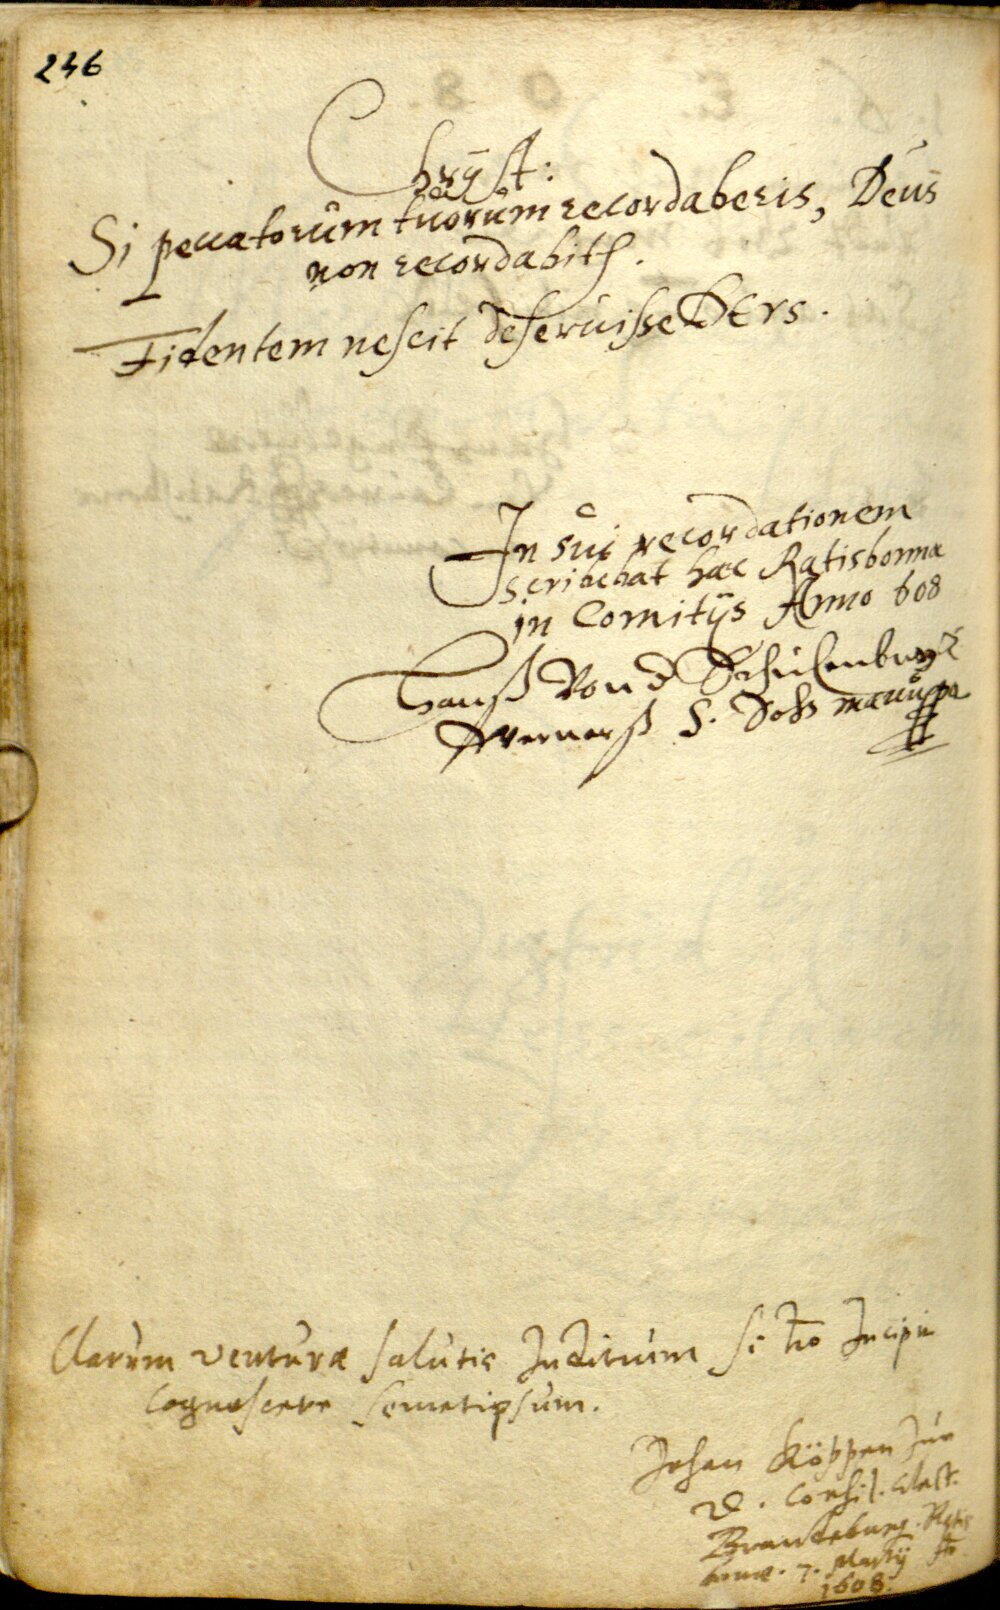 236
Chrÿst:
Si peccatorum tuorum recordaberis, Deus
non recordabitr.
Fidentem nescit deseruisse DEVS.
In sui recordationem
scribebat hæc Ratisbonnæ
in Comitijs Anno 608
Hanß Von d Schulenburgk
Wernerß S. Sohn manu ppa
Clarum venturæ salutis Inditium si ho Incipit
cognoscere semetipsum.
Johan Köppen Jur
D. Consil. Elect.
Brandeburg. Ratis
bonæ. 7. Martij Ao
1608.